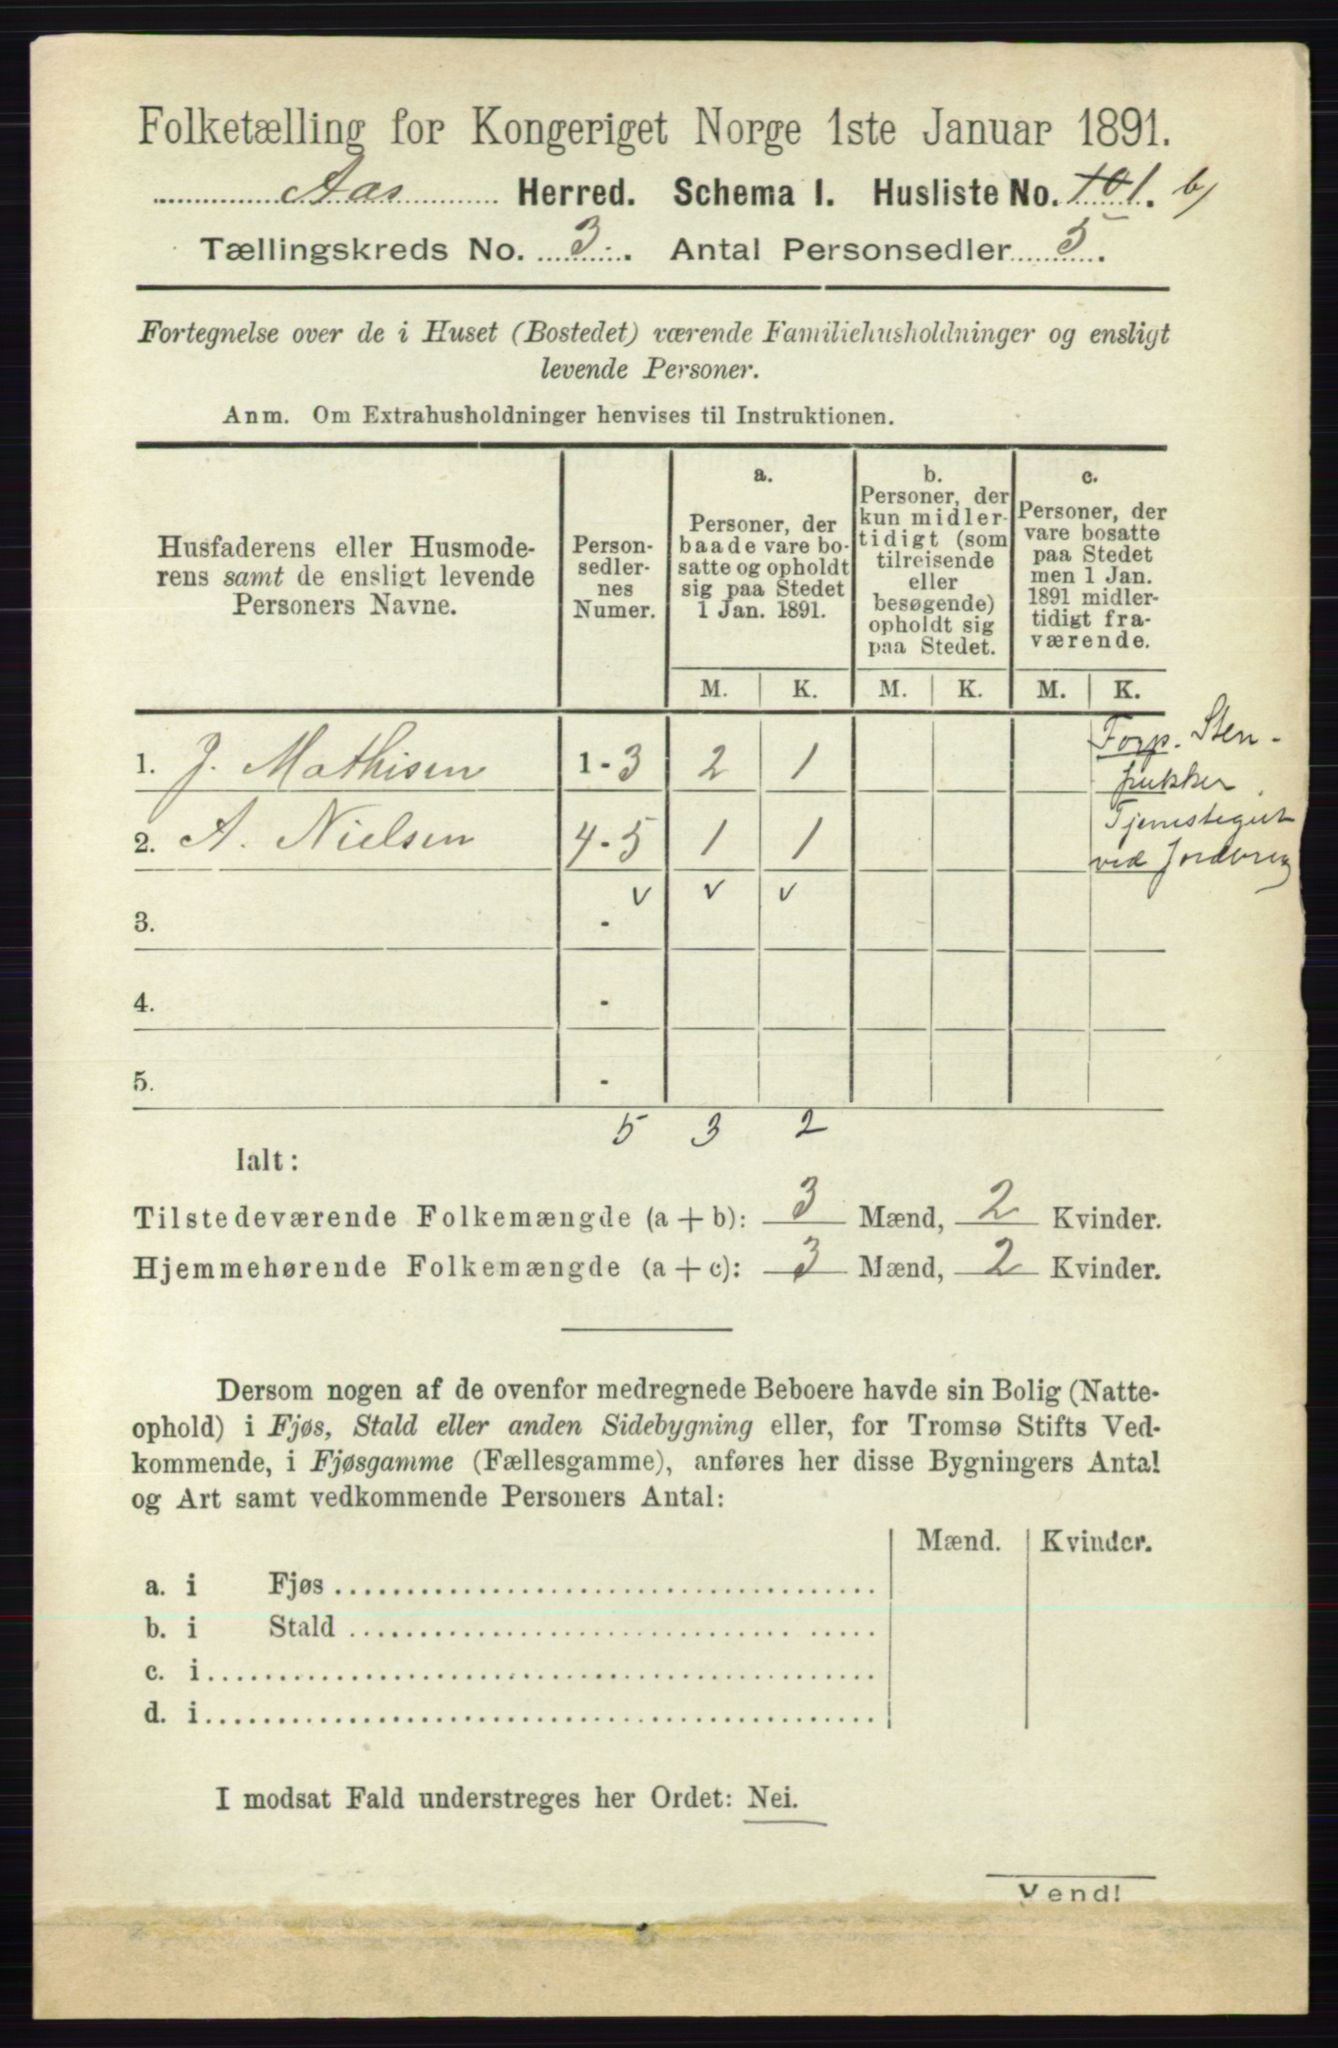 Folketælling for Kongeriget Norge 1ste Januar 1891.
Aas Herred. Schema I. Husliste No. 101. b)
Tællingskreds No. 3. Antal Personsedler 5.
Fortegnelse over de i Huset (Bostedet) værende Familiehusholdninger og ensligt
levende Personer.
Anm. Om Extrahusholdninger henvises til Instruktionen.
Husfaderens eller Husmode-
rens samt de ensligt levende
Personers Navne.
Person-
sedler-
nes
Numer.
a.
Personer, der
baade vare bo-
satte og opholdt
sig paa Stedet
1 Jan. 1891.
b.
Personer, der
kun midler-
tidigt (som
tilreisende
eller
besøgende)
opholdt sig
paa Stedet.
c.
Personer, der
vare bosatte
paa Stedet
men 1 Jan.
1891 midler-
tidigt fra-
værende.
M. K. M. K. M. K.
1. J. Mathisen 1-3 2 1 Forp. Sten-
pukker
2. A. Nielsen 4-5 1 1 Tjenestegut
ved Jordbrug
v v v
3. -
4. -
5. -
5 3 2
Ialt:
Tilstedeværende Folkemængde (a + b): 3 Mænd, 2 Kvinder.
Hjemmehørende Folkemængde (a + c): 3 Mænd, 2 Kvinder.
Dersom nogen af de ovenfor medregnede Beboere havde sin Bolig (Natte-
ophold) i Fjøs, Stald eller anden Sidebygning eller, for Tromsø Stifts Ved-
kommende, i Fjøsgamme (Fællesgamme), anføres her disse Bygningers Antal
og Art samt vedkommende Personers Antal:
Mænd. Kvinder.
a. i Fjøs
b. i Stald
c. i
d. i
I modsat Fald understreges her Ordet: Nei.
Vend!